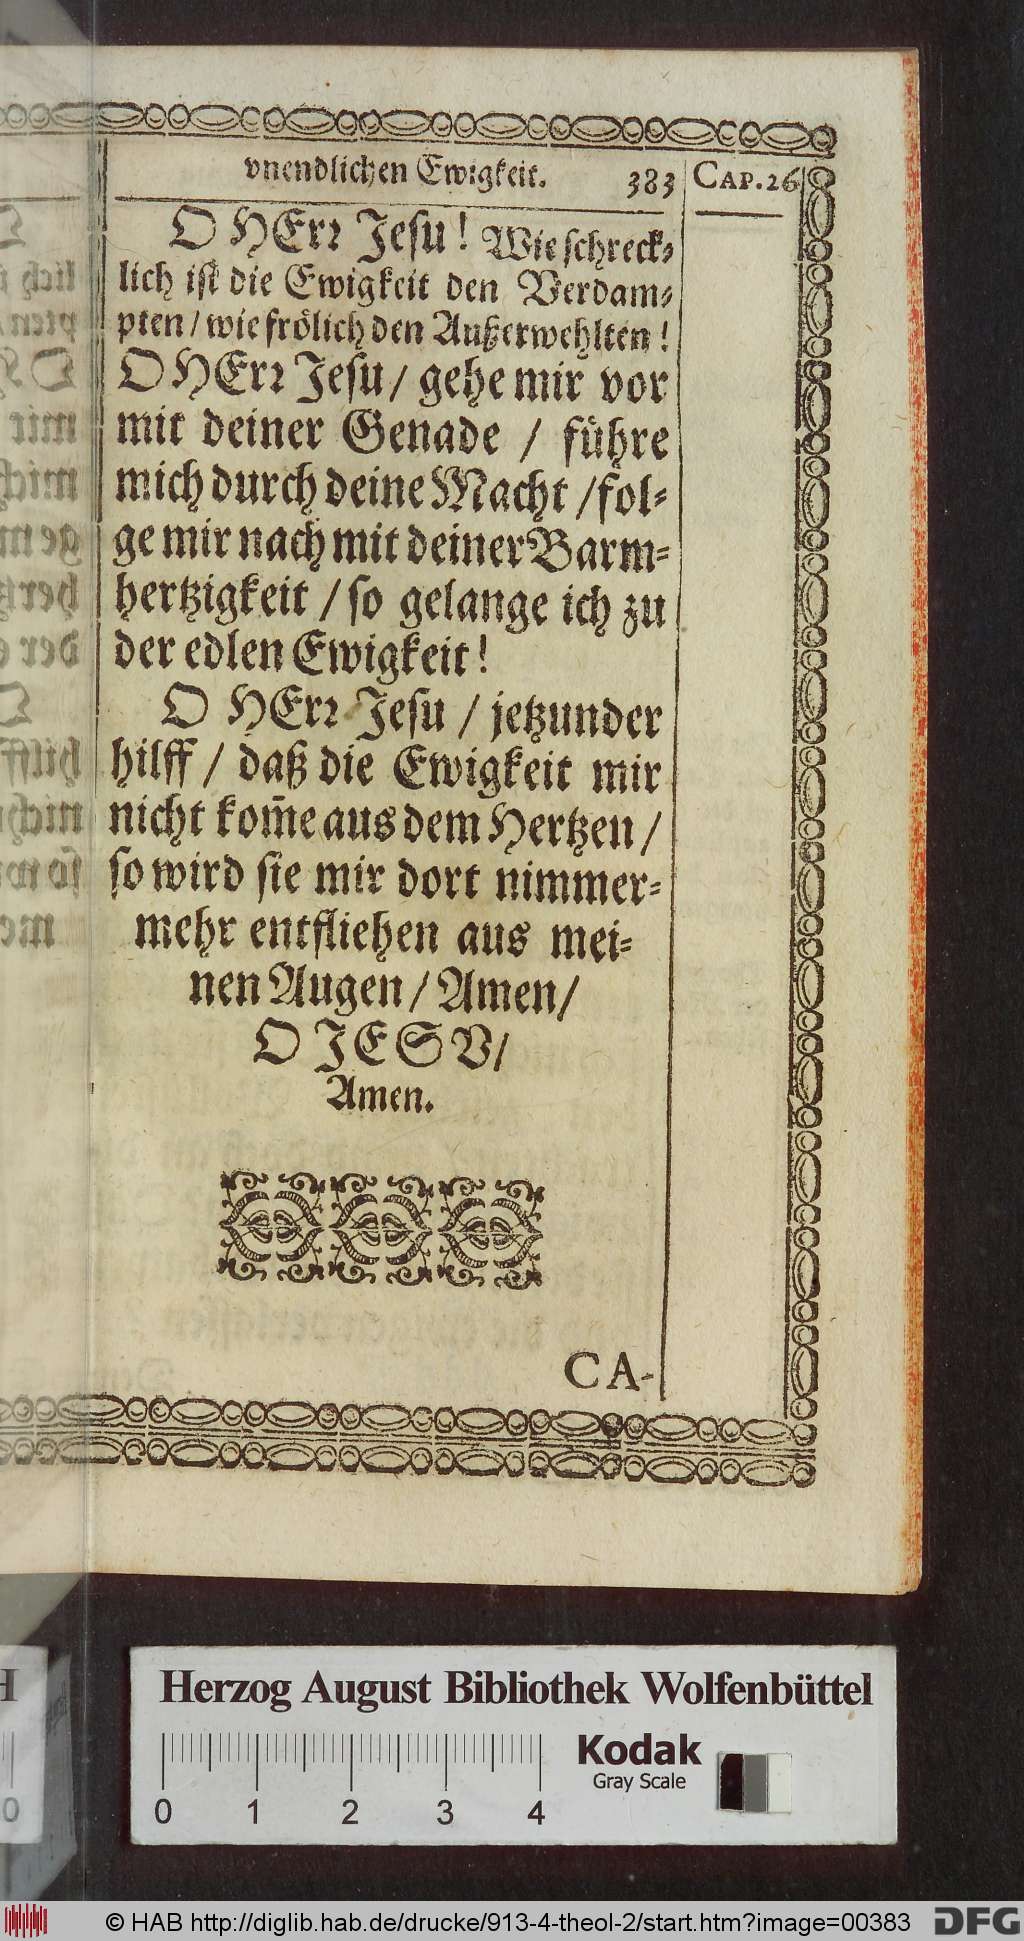 vnendlichen Ewigkeit. 383 CAP. 26
O HErr Jesu! Wie schreck-
lich ist die Ewigkeit den Verdam-
pten / wie frölich den Außerwehlten!
O HErr Jesu / gehe mir vor
mit deiner Genade / führe
mich durch deine Macht / fol-
ge mir nach mit deiner Barm-
hertzigkeit / so gelange ich zu
der edlen Ewigkeit!
O HErr Jesu / jetzunder
hilff / daß die Ewigkeit mir
nicht kom̄e aus dem Hertzen /
so wird sie mir dort nimmer-
mehr entfliehen aus mei-
nen Augen / Amen /
O JESV /
Amen.
CA-
Herzog August Bibliothek Wolfenbüttel
Kodak
Gray Scale
0 1 2 3 4
© HAB http://diglib.hab.de/drucke/913-4-theol-2/start.htm?image=00383 DFG